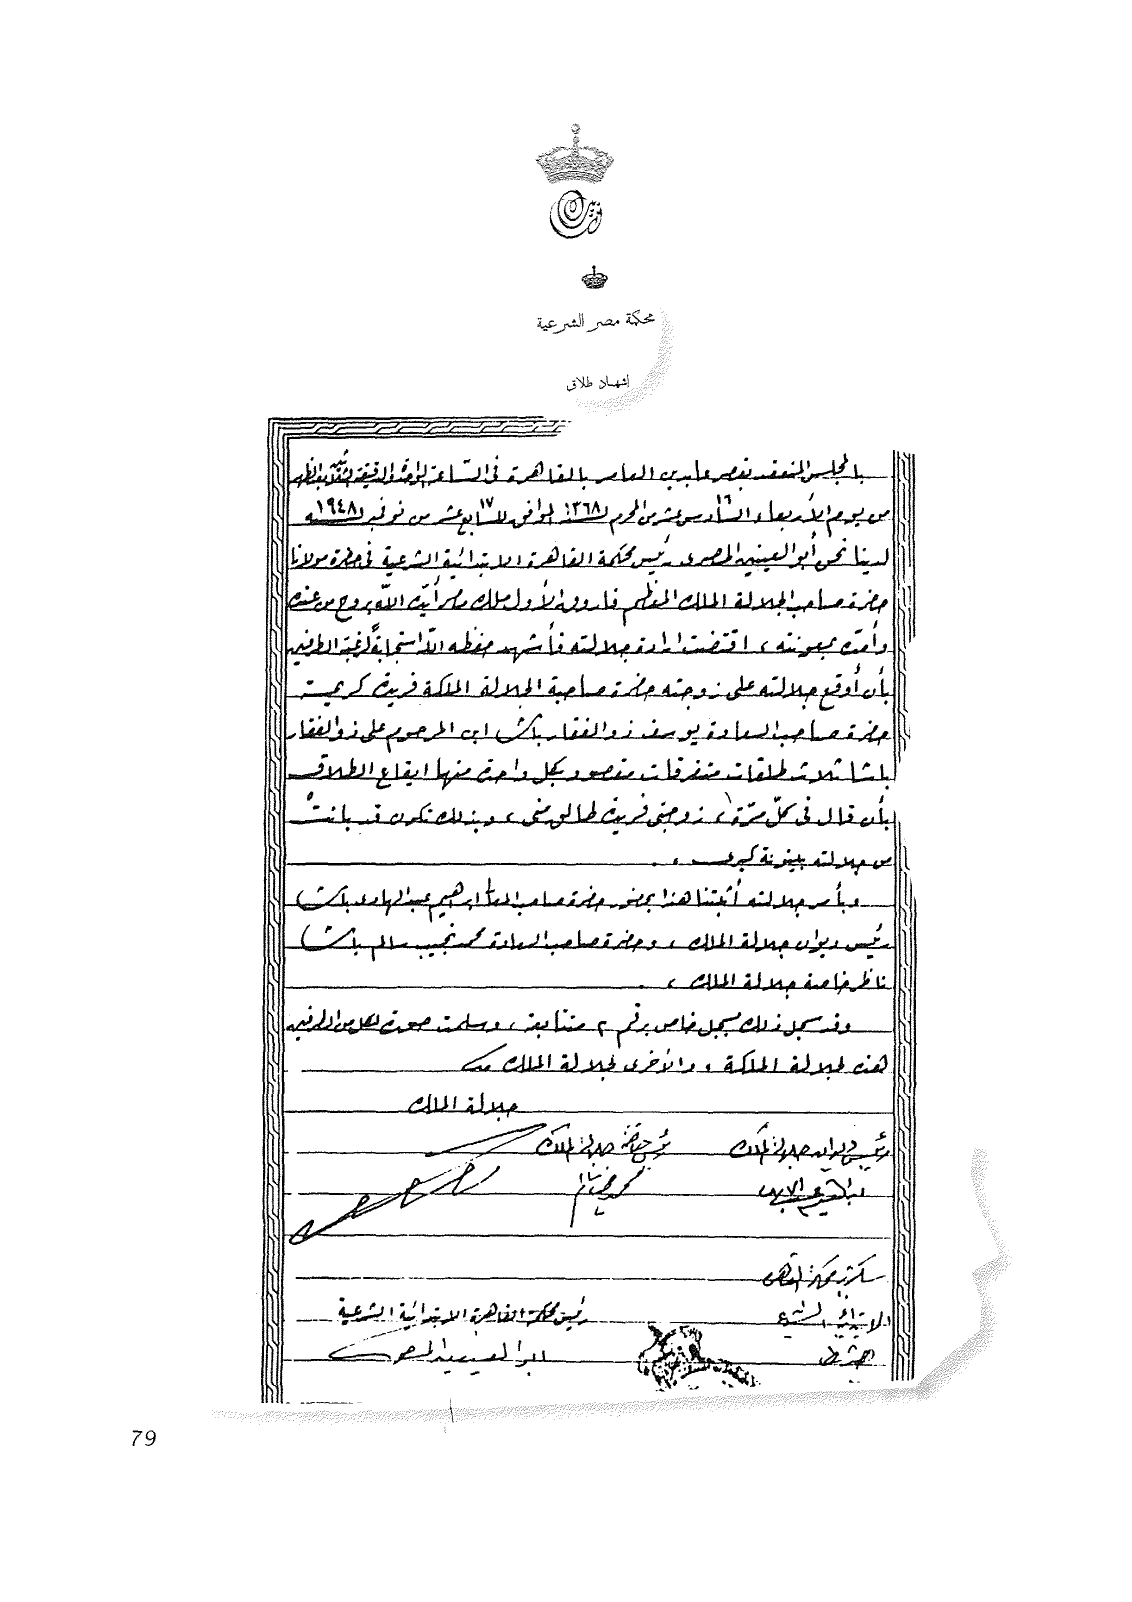 محكمة مصر الشرعية
إشهاد طلاق
بالمجلس المنعقد بقصر عابدين العامر بالقاهرة فى الساعة الواحدة والدقيقة بعد الظهر
من يوم الأربعاء السادس عشر ١٦ من المحرم لسنة ١٣٦٨ الموافق للسابع عشر ١٧ من نوفمبر لسنة ١٩٤٨
لدينا نحن أبو العينين المصرى رئيس محكمة القاهرة الابتدائية الشرعية فى حضرة مولانا
حضرة صاحب الجلالة الملك المعظم فاروق الأول ملك مصر أيده الله بروح من عنده
وأمده بمعونته، اقتضت ارادة جلالته فأشهد حفظه الله استجابةً لرغبة الطرفين
بأن أوقع جلالته على زوجته حضرة صاحبة الجلالة الملكة فريدة كريمة
حضرة صاحب السعادة يوسف ذو الفقار باشا ابن المرحوم على ذو الفقار
باشا ثلاث طلقات متفرقات مقصود بكل واحدة منها ايقاع الطلاق
بأن قال فى كلّ مرّة، زوجتى فريدة طالق منى، وبذلك تكون قد بانتْ
من جلالته بينونة كبرى.
وبأمر جلالته أثبتنا هذا بحضور حضرة صاحب المعالى ابراهيم عبد الهادى باشا
رئيس ديوان جلالة الملك، وحضرة صاحب السعادة محمد نجيب سالم باشا
ناظر خاصة جلالة الملك.
وقد سجل ذلك بسجل خاص برقم ٢ متتابعة، وسلمت صورة لكل من الطرفين
هذه لجلالة الملكة، والأخرى لجلالة الملك
جلالة الملك
رئيس ديوان جلالة الملك جلالة الملك
ابراهيم عبد الهادى محمد نجيب سالم
سكرتير محكمة القاهرة
الابتدائية الشرعية رئيس محكمة القاهرة الابتدائية الشرعية
ابو العينين المصرى
79